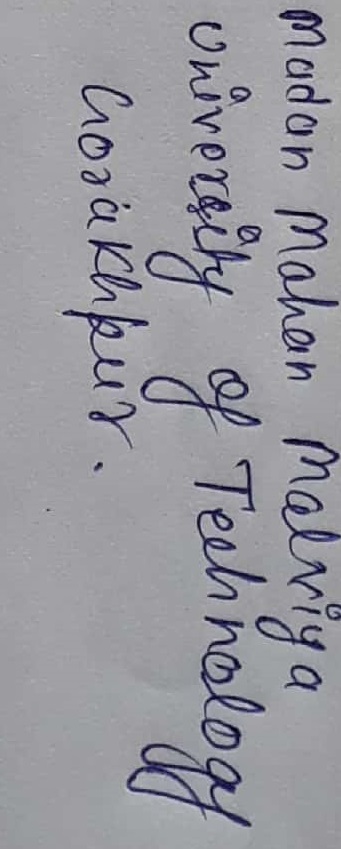 Madan Mohan Malviya
University of Technology
Gorakhpur.